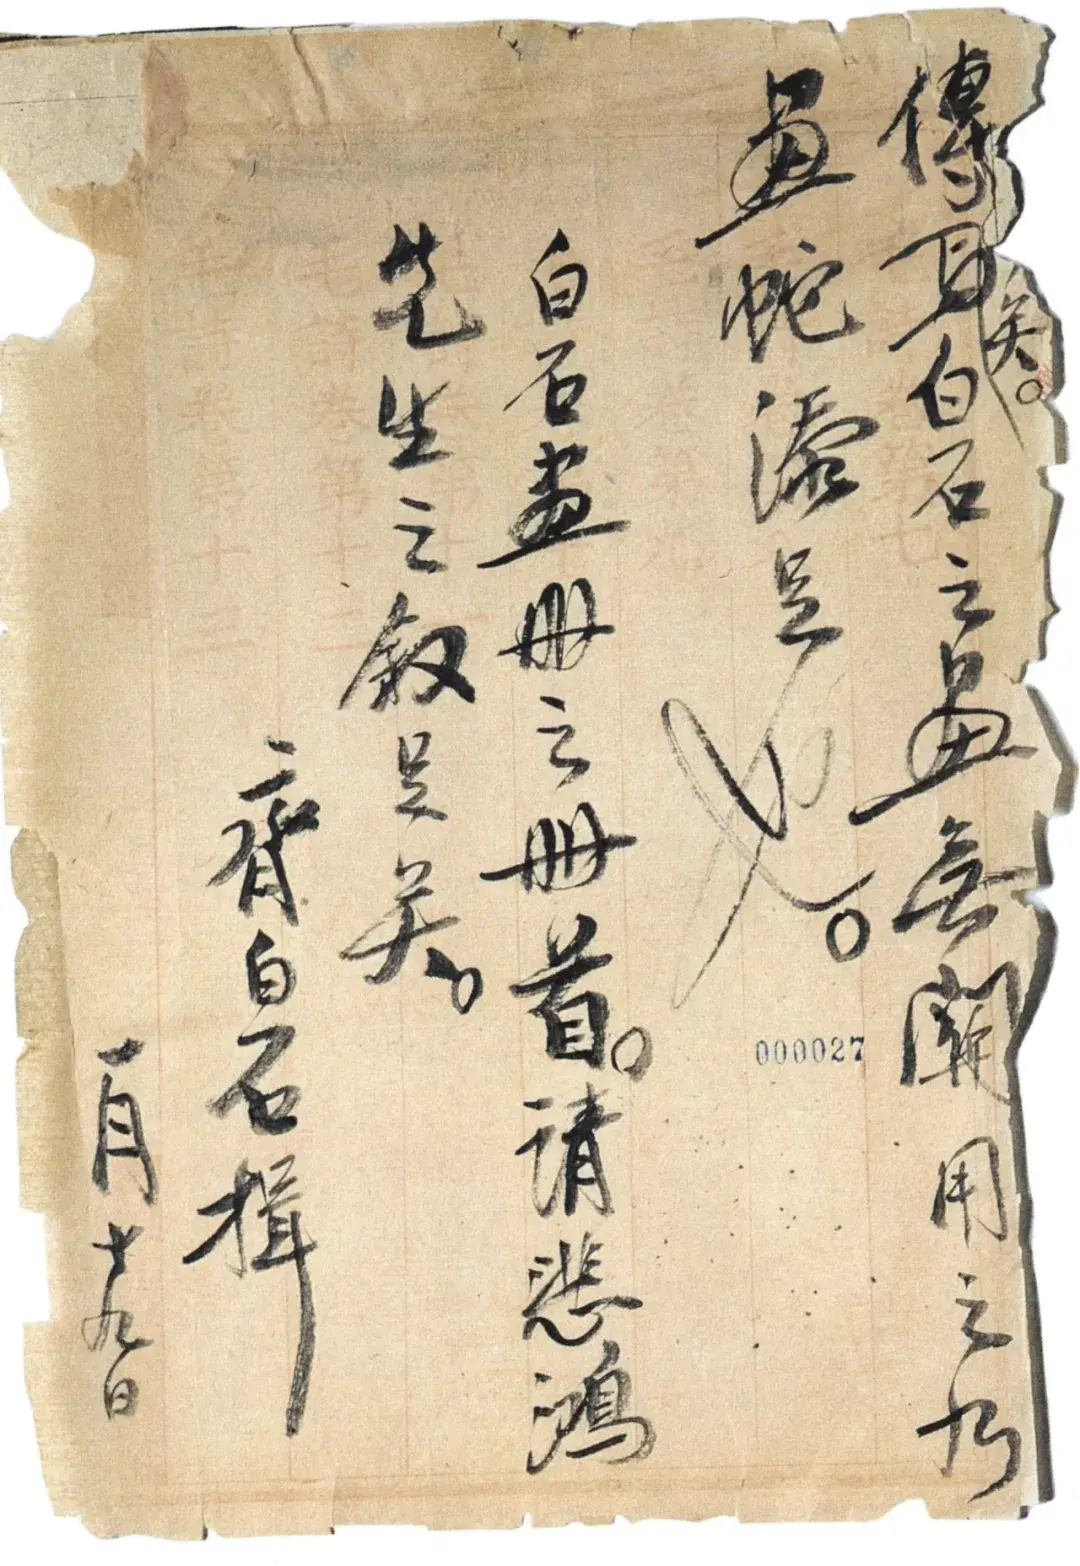 矣。
傳白石之畫無關用之乃
畫蛇添足也。
000027
白石畫册之册首。请悲鴻
先生之叙足矣。
齊白石揖
一月十九日